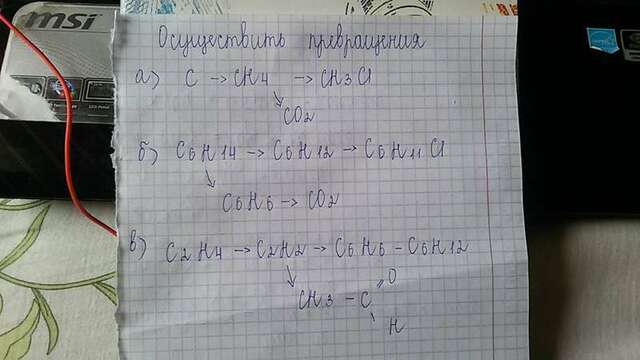 msi
Осуществить превращения
а) C → CH4 → CH3Cl
↘ CO2
б) C6H14 → C6H12 → C6H11Cl
↘ C6H6 → CO2
в) C2H4 → C2H2 → C6H6 – C6H12
↘ CH3 – C
=O
\ H